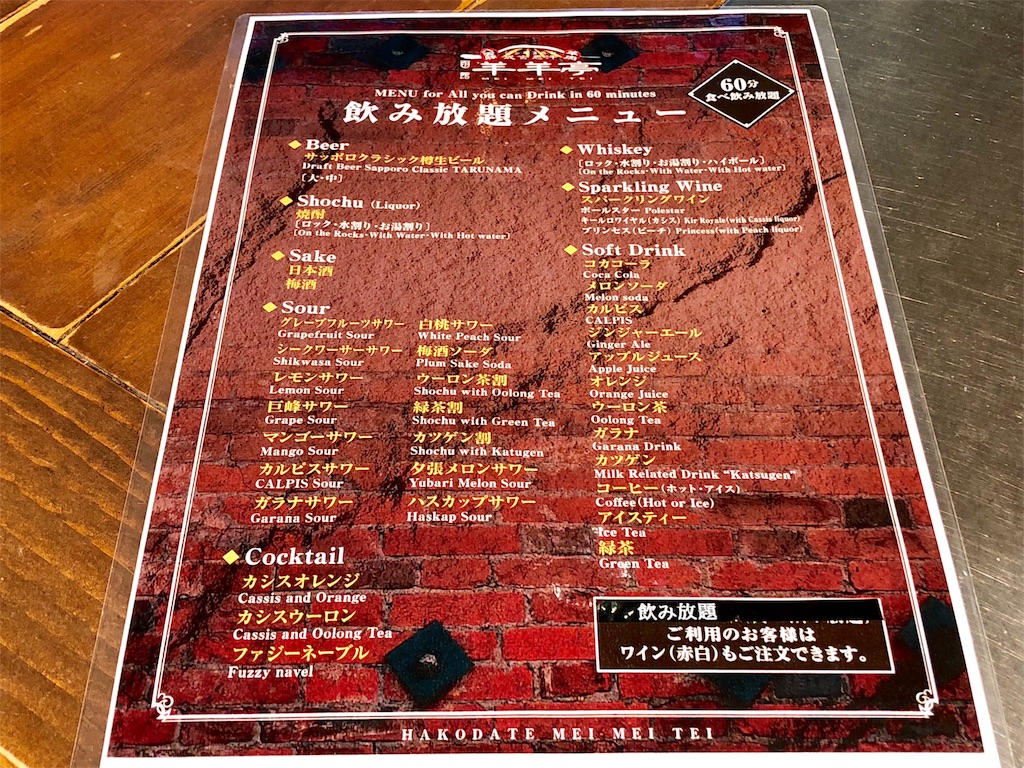 羊羊亭
MEI MEI TEI
MENU for All you can Drink in 60 minutes
飲み放題メニュー
60分
食べ飲み放題
Beer
サッポロクラシック樽生ビール
Draft Beer Sapporo Classic TARUNAMA
〔大・中〕
Shochu (Liquor)
焼酎
〔ロック・水割り・お湯割り〕
〔On the Rocks・With Water・With Hot water〕
Sake
日本酒
梅酒
Sour
グレープフルーツサワー
Grapefruit Sour
シークワーサーサワー
Shikwasa Sour
レモンサワー
Lemon Sour
巨峰サワー
Grape Sour
マンゴーサワー
Mango Sour
カルピスサワー
CALPIS Sour
ガラナサワー
Garana Sour
白桃サワー
White Peach Sour
梅酒ソーダ
Plum Sake Soda
ウーロン茶割
Shochu with Oolong Tea
緑茶割
Shochu with Green Tea
カツゲン割
Shochu with Katugen
夕張メロンサワー
Yubari Melon Sour
ハスカップサワー
Haskap Sour
Cocktail
カシスオレンジ
Cassis and Orange
カシスウーロン
Cassis and Oolong Tea
ファジーネーブル
Fuzzy navel
Whiskey
〔ロック・水割り・お湯割り・ハイボール〕
〔On the Rocks・With Water・With Hot water〕
Sparkling Wine
スパークリングワイン
ポールスター Polestar
キールロワイヤル(カシス) Kir Royale(with Cassis liquor)
プリンセス(ピーチ) Princess(with Peach liquor)
Soft Drink
コカコーラ
Coca Cola
メロンソーダ
Melon soda
カルピス
CALPIS
ジンジャーエール
Ginger Ale
アップルジュース
Apple Juice
オレンジ
Orange Juice
ウーロン茶
Oolong Tea
ガラナ
Garana Drink
カツゲン
Milk Related Drink "Katsugen"
コーヒー(ホット・アイス)
Coffee(Hot or Ice)
アイスティー
Ice Tea
緑茶
Green Tea
飲み放題
ご利用のお客様は
ワイン(赤白)もご注文できます。
HAKODATE MEI MEI TEI